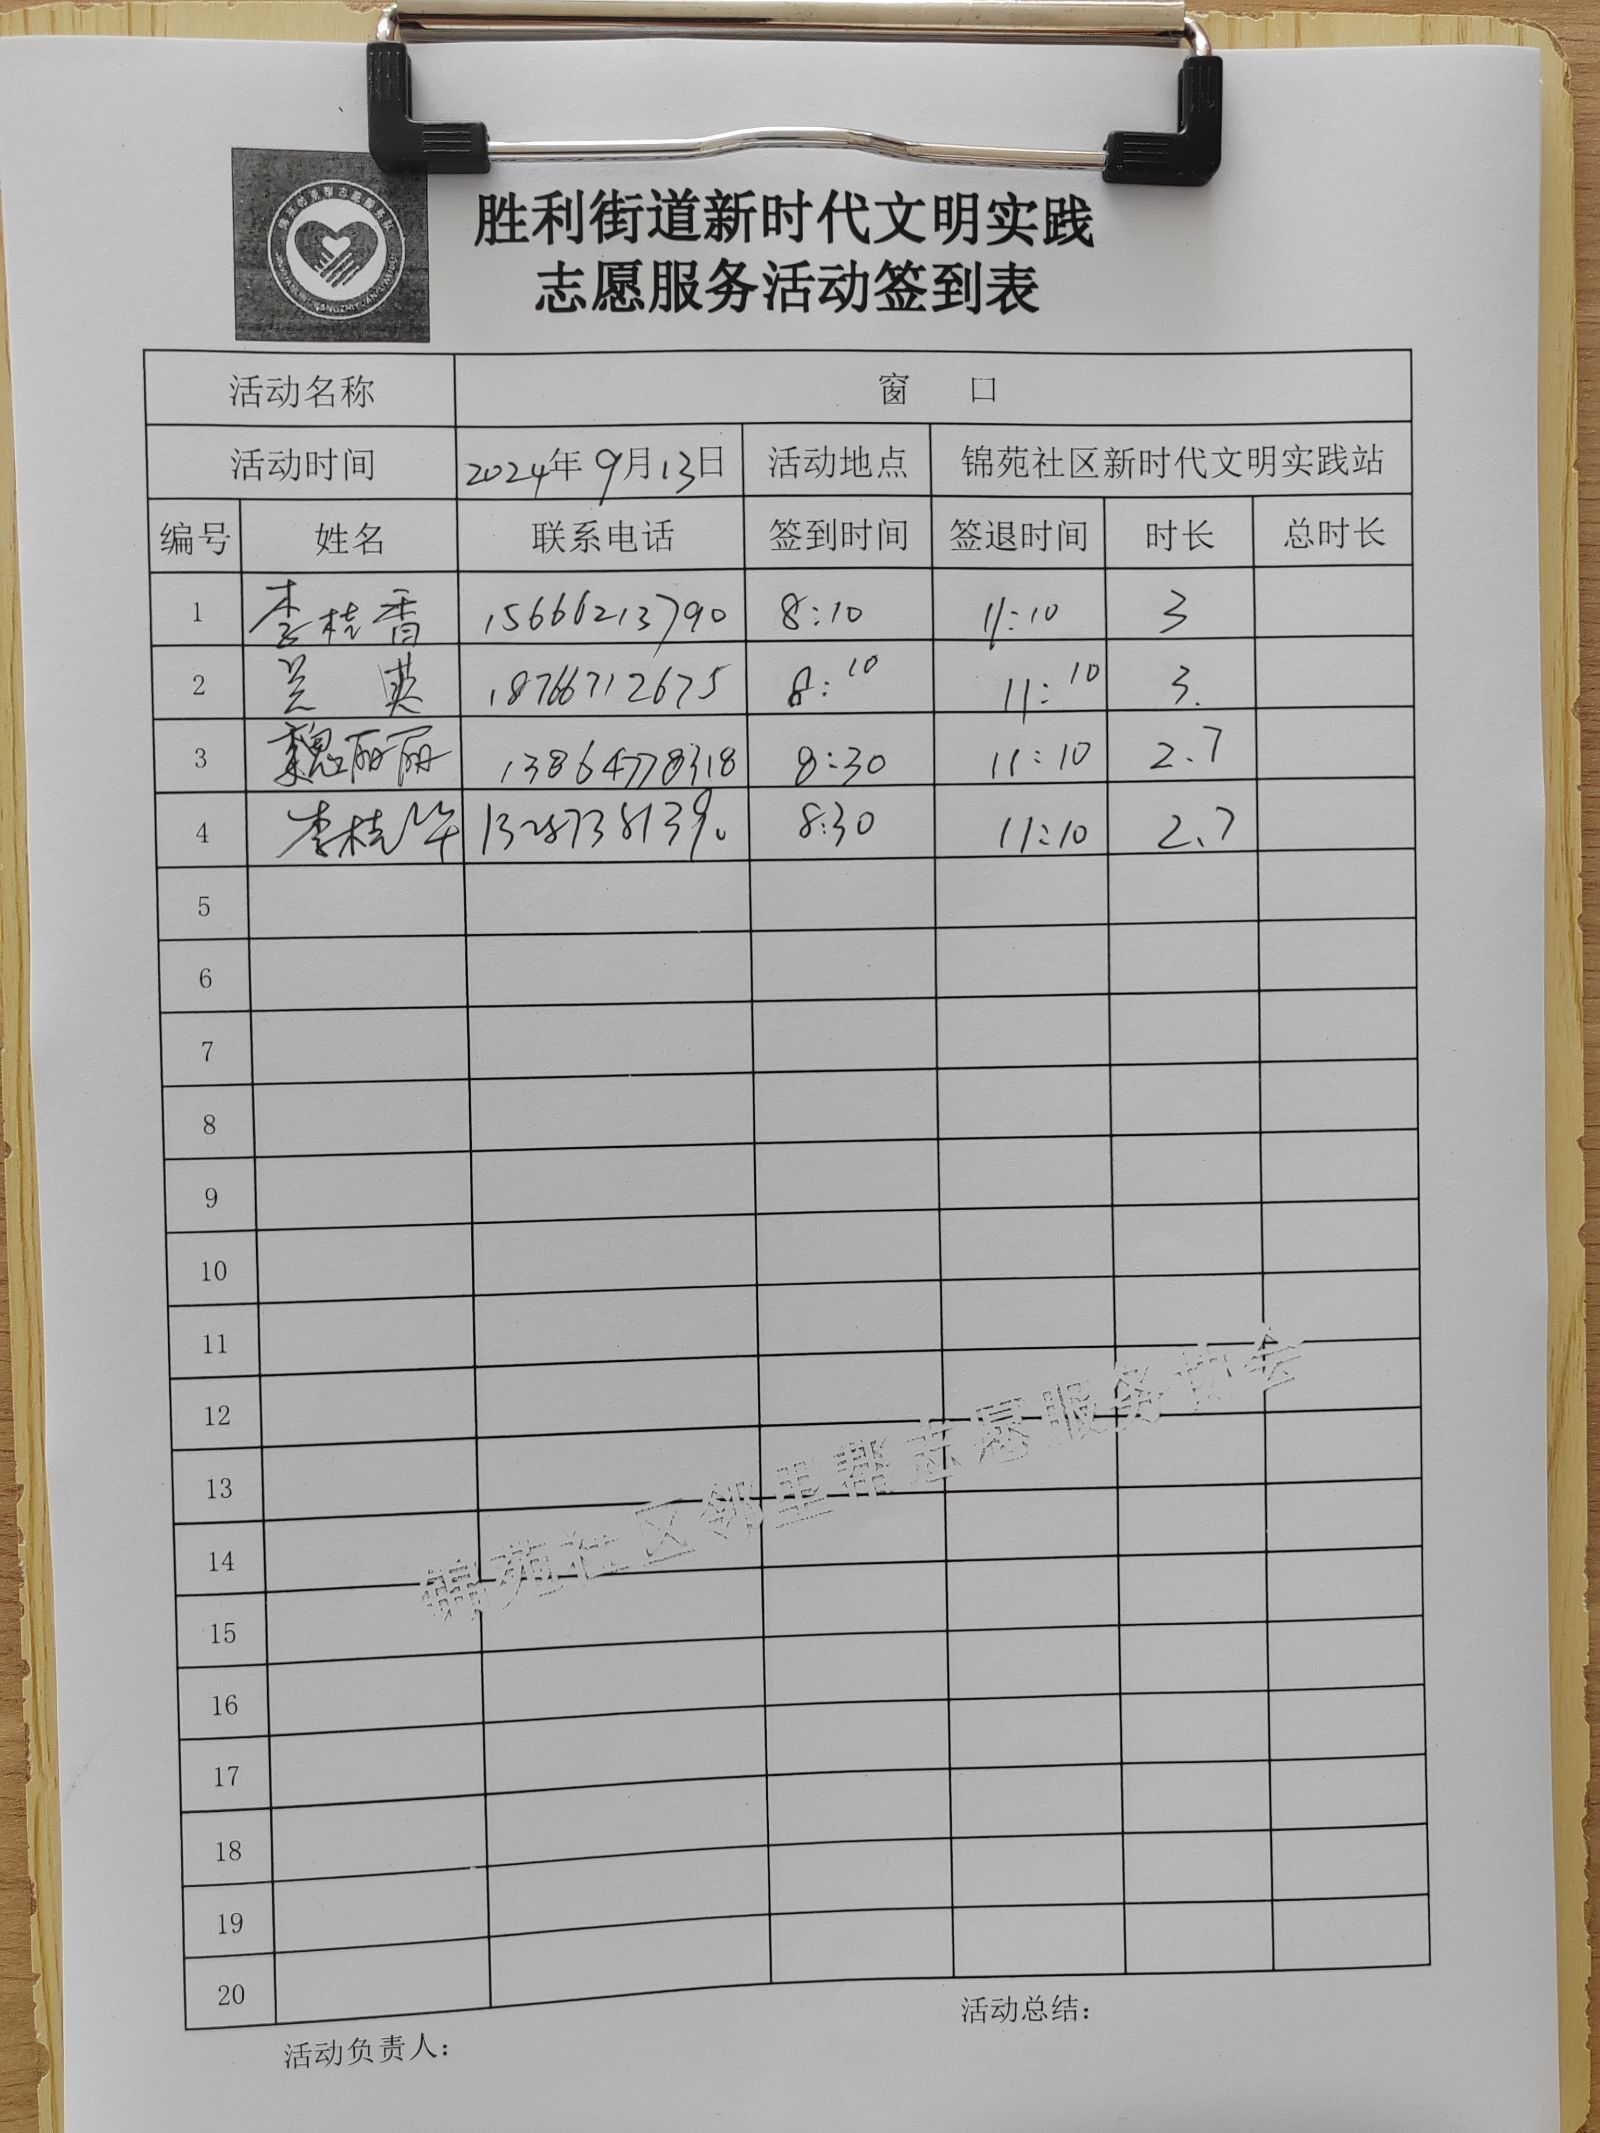 胜利街道新时代文明实践
志愿服务活动签到表
活动名称 窗 口
活动时间 2024年9月13日 活动地点 锦苑社区新时代文明实践站
编号 姓名 联系电话 签到时间 签退时间 时长 总时长
1 李桂香 15666213790 8:10 11:10 3
2 兰英 18766712675 8:10 11:10 3.
3 魏丽丽 13864778318 8:30 11:10 2.7
4 李桂华 8:30 11:10 2.7
5
6
7
8
9
10
11
12
13
14
15
16
17
18
19
20
锦苑社区邻里帮志愿服务协会
活动负责人: 活动总结: